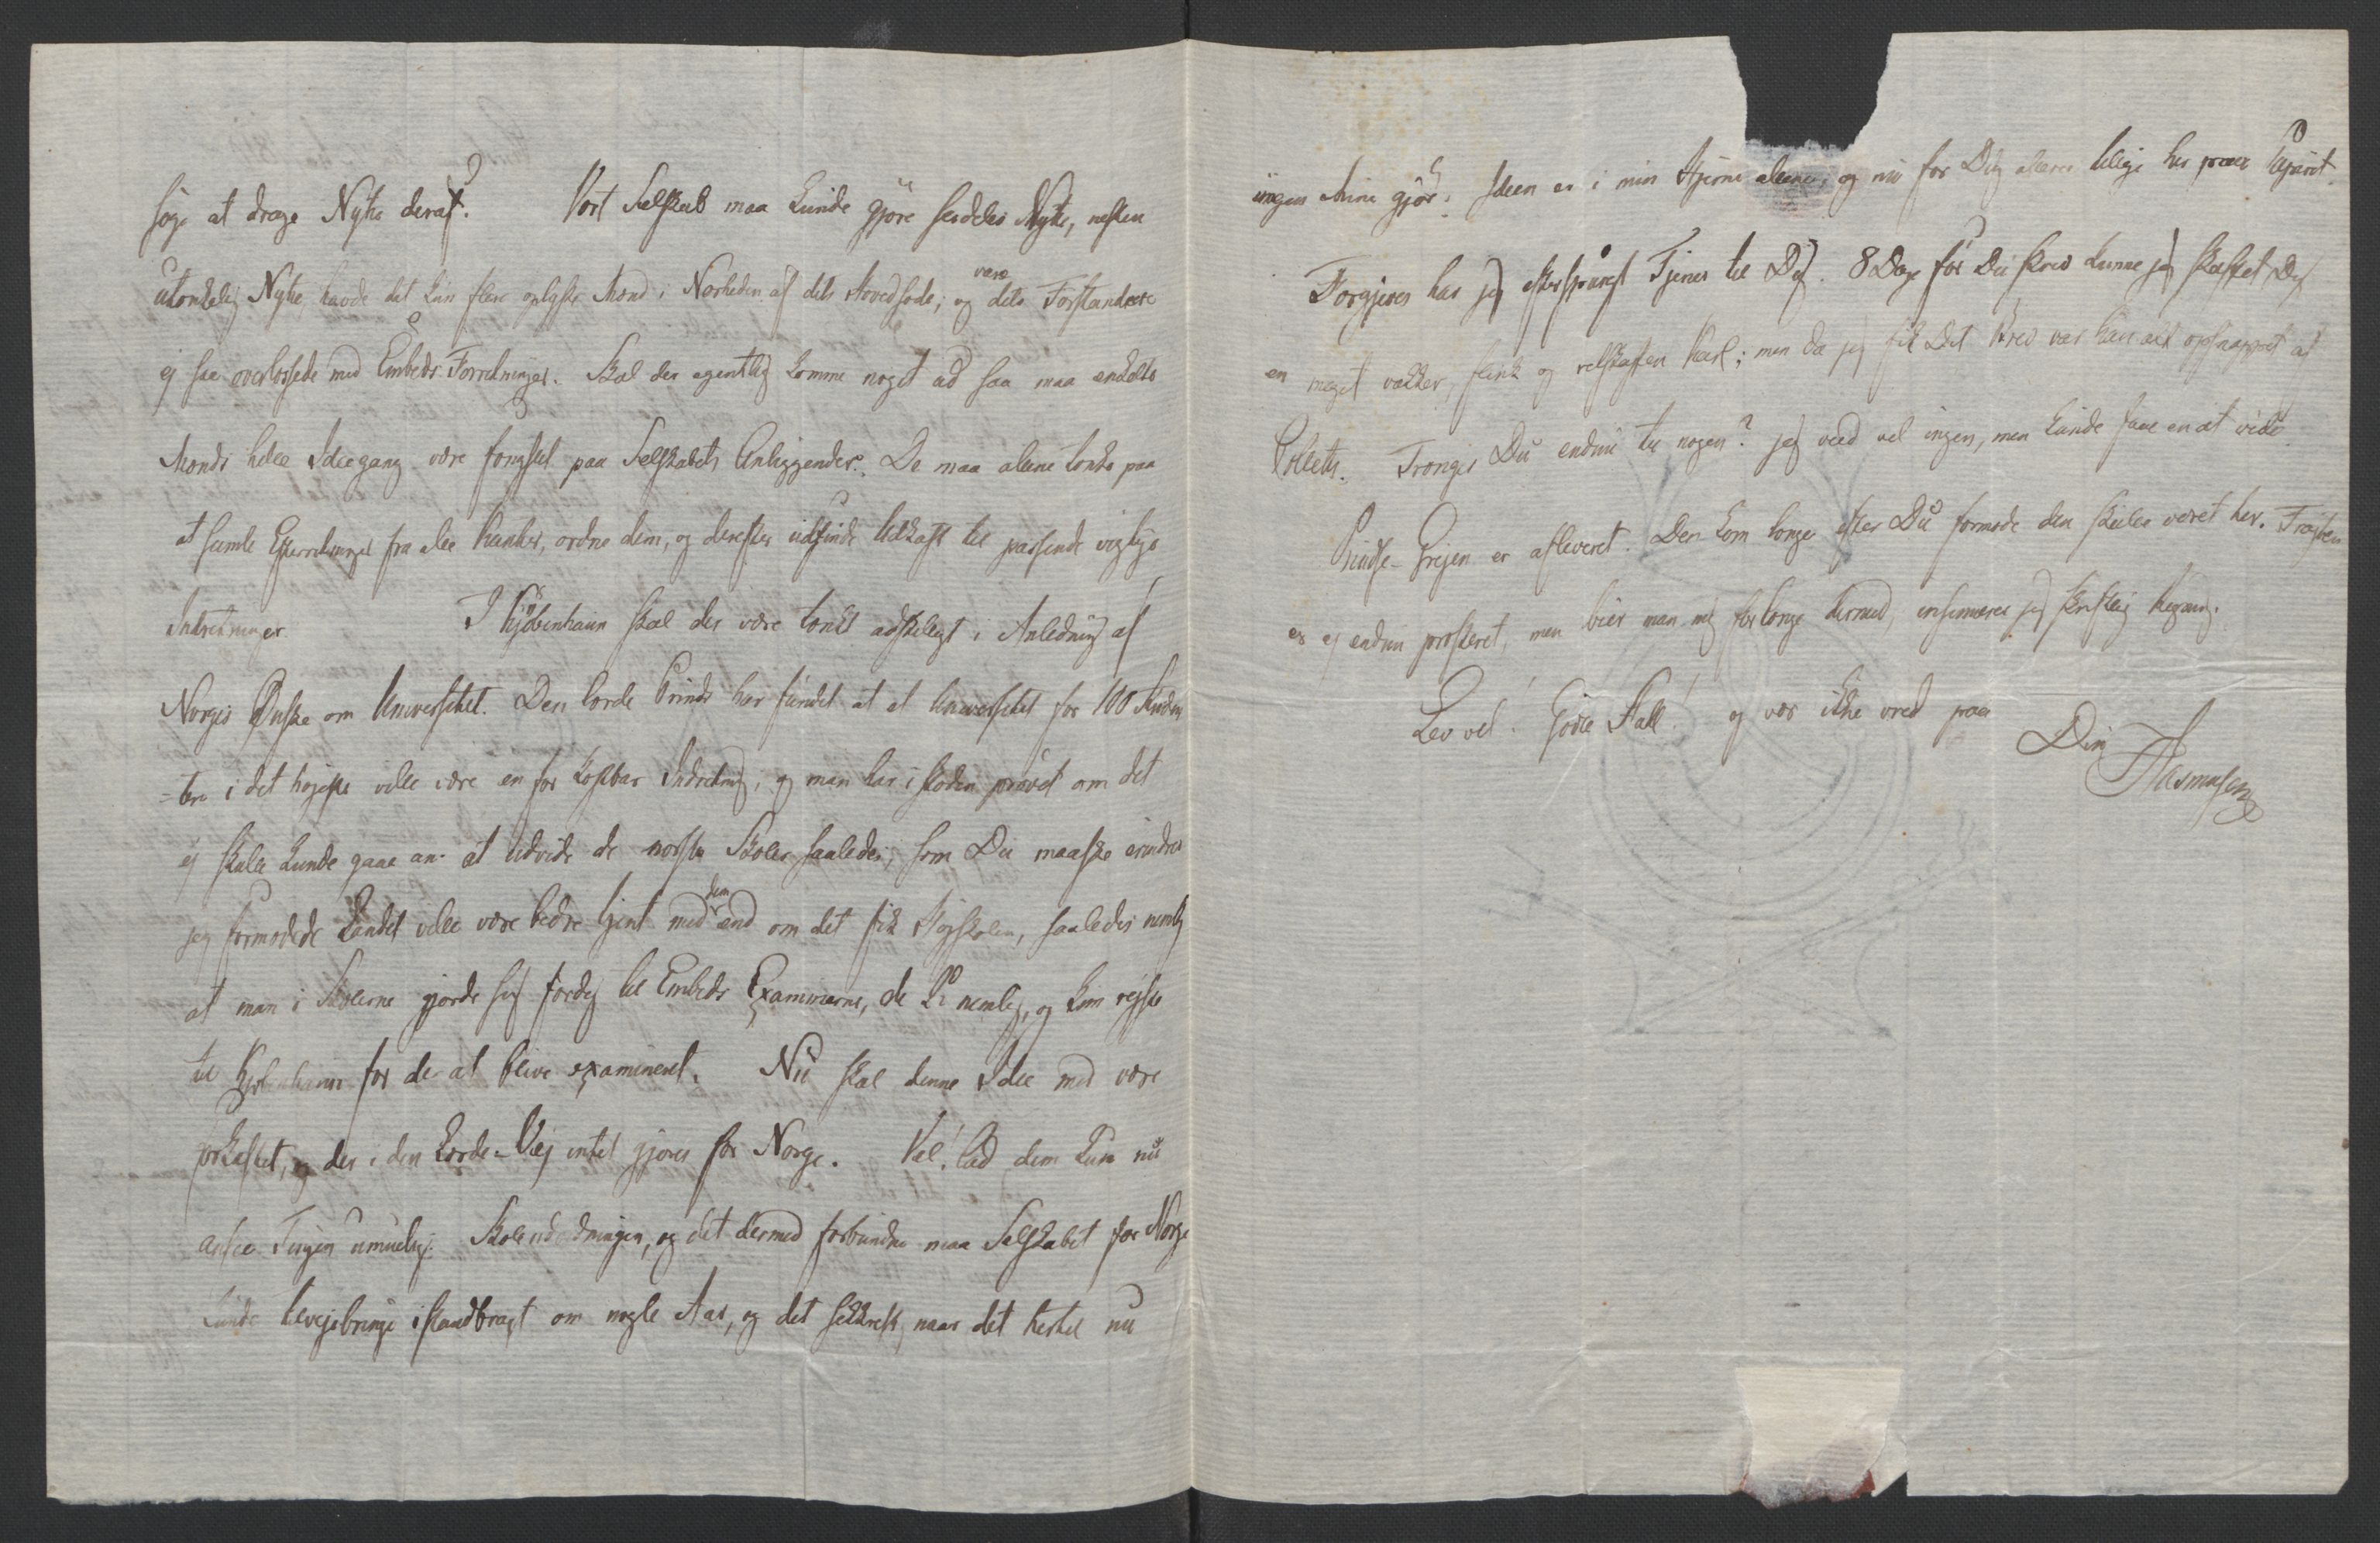 søge at drage Nytte deraf? Vort Selskab maa kunde gjøre særdeles Nytte, næsten
utænkelig Nytte, havde det kun flere oplyste Mænd i Nærheden af dets Hovedsæde, og dets være Forstandere
ej saa overlæssede med Embeds Forretninger. Skal der egentlig komme noget ud saa maa enkelte
Mænds hele Ideegang være fæstet paa Selskabets Anliggender. De maa alene tænke paa
at samle Efterretninger fra alle Kanter, ordne dem, og derefter udfinde Udkast til passende vigtige
Indretninger. I Kjøbenhavn skal der være tænkt adskilligt i Anledning af
Norges Ønske om Universitet. Den lærde Prinds har fundet at et Universitet for 100 Studen
=ter i det højeste ville være en for kostbar Indretning; og man har i Stæden prøvet om det
ej skulle kunde gaae an at udvide de norske Skoler saaledes, som Du maaske erindrer
jeg formodede Landet ville være bedre tjent med dem end om det fik Højskolen, saaledes nemlig
at man i Skolerne gjorde sig færdig til Embeds Examinerne, de nemlig, og kun rejste
til Kjøbenhavn for der at blive examineret. Nu skal denne Idee med være
forkastet, og der i den Lærde-Vej intet gjøres for Norge. Vel! lad dem kun nu
ansee Tingen umuelig. Skoleudvidningen, og det dermed forbundne maa Selskabet for Norge
kunde tilvejebringe istandbragt om nogle Aar, og det sikkrest, naar det hertil nu
ingen Mine gjør. Ideen er i min Hjerne alene, og nu for Dig allene tillige her paa Papiret.
Forgjeves har jeg efterspurgt Tjener til Dig. 8 Dage før Du skrev kunne jeg skaffet Dig
en meget vakker, flink og retskaffen Karl; men da jeg fik Dit Brev var han alt opsnappet af
Colletts. Trænger Du endnu til nogen? jeg veed vel ingen, men kunde faae en at vide
Prindse-Grejen er afleveret. Den kom længe efter Du formode den skulle været her. Fragten
er ej endnu præsteret, men bier man mig for længe dermed, insinuerer jeg skriftlig Regning.
Lev vel! Gode Fall! og vær ikke vred paa
Din
Rasmusen